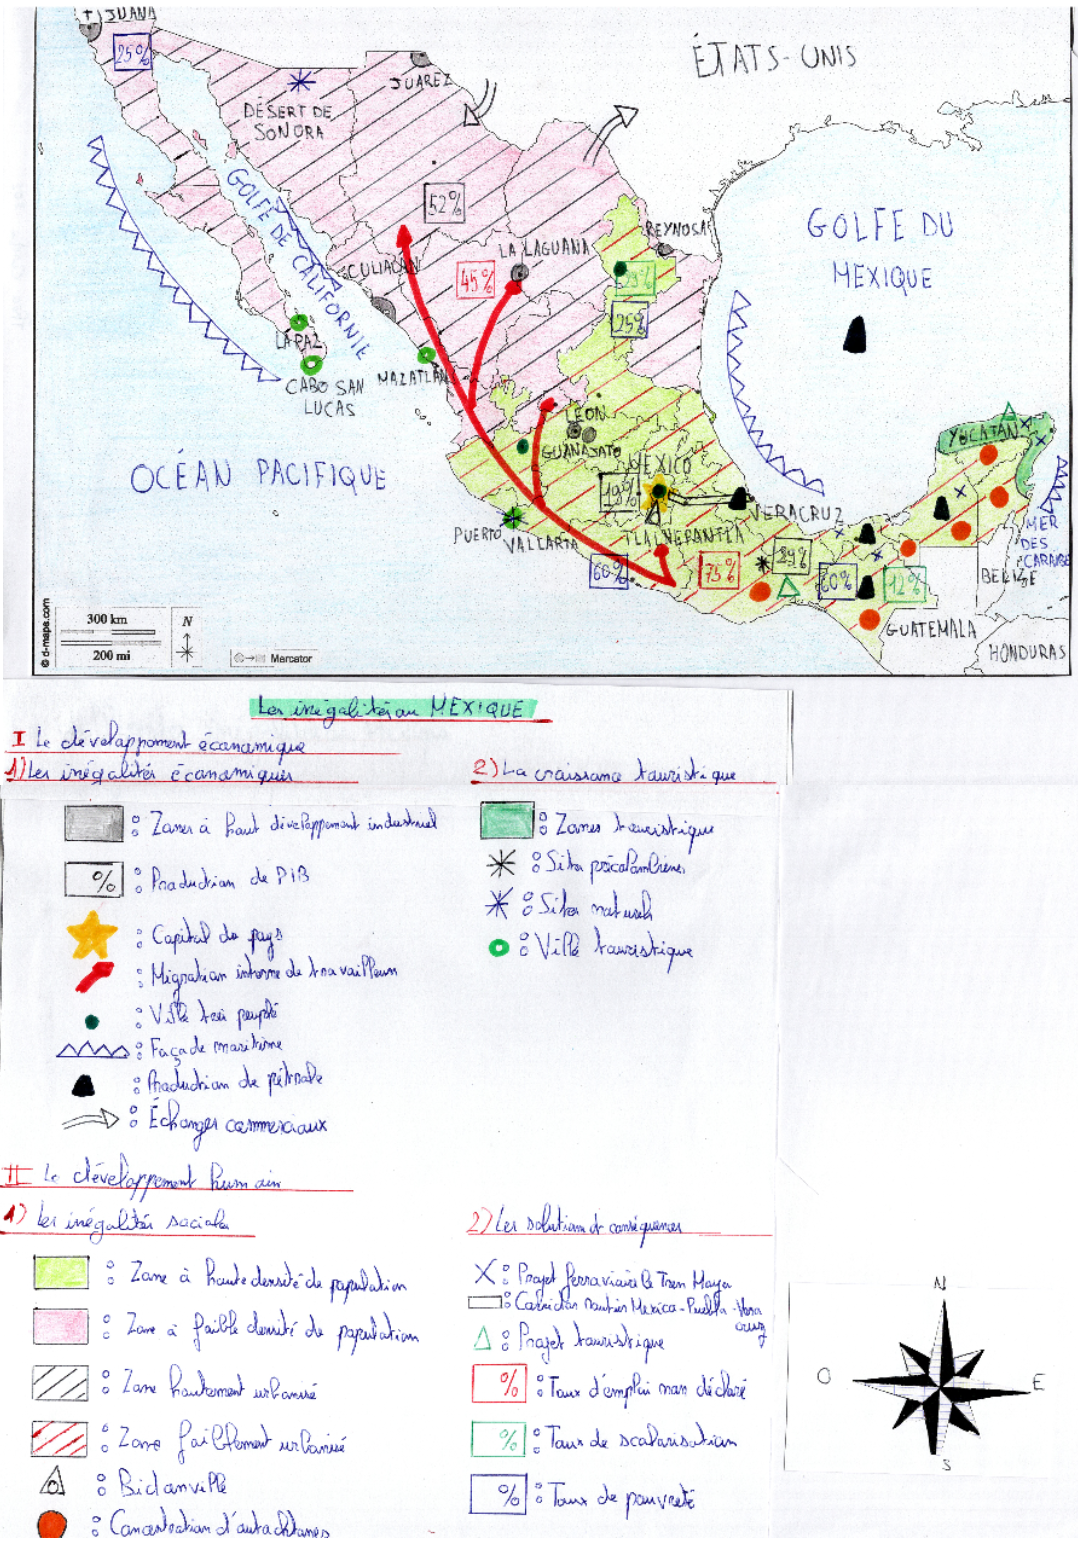 JUANA
25%
ÉTATS-UNIS
JUAREZ
DÉSERT DE
SONORA
GOLFE DE CALIFORNIE
52%
GOLFE DU
MEXIQUE
REYNOSA
LA LAGUANA
CULIACÁN
45%
25%
LA PAZ
CABO SAN
LUCAS
MAZATLÁN
LEON
GUANAJATO
YUCATÁN
OCÉAN PACIFIQUE
MEXICO
19%
VERACRUZ
PUERTO
VALLARTA
TLALNEPANTLA
MER
DES
CARAÏBES
60%
75%
89%
60%
12%
BELIZE
GUATEMALA
HONDURAS
© d-maps.com
300 km
200 mi
N
Mercator
Les inégalités au MEXIQUE
I Le développement économique
1) Les inégalités économiques
: Zones à haut développement industriel
% : Production de PIB
: Capital du pays
: Migration interne de travailleurs
: Ville très peuplé
: Façade maritime
: Production de pétrole
: Échanges commerciaux
2) La croissance touristique
: Zones touristique
: Sites précolombiens
: Sites naturels
: Ville touristique
II Le développement humain
1) Les inégalités sociales
: Zone à haute densité de population
: Zone à faible densité de population
: Zone hautement urbanisé
: Zone faiblement urbanisé
: Bidonville
: Concentration d'autochtones
2) Les solutions et conséquences
: Projet ferroviaire le Tren Maya
: Corridor routier Mexico-Puebla-Vera
cruz
: Projet touristique
% : Taux d'emploi non déclaré
% : Taux de scolarisation
% : Taux de pauvreté
N
O
E
S